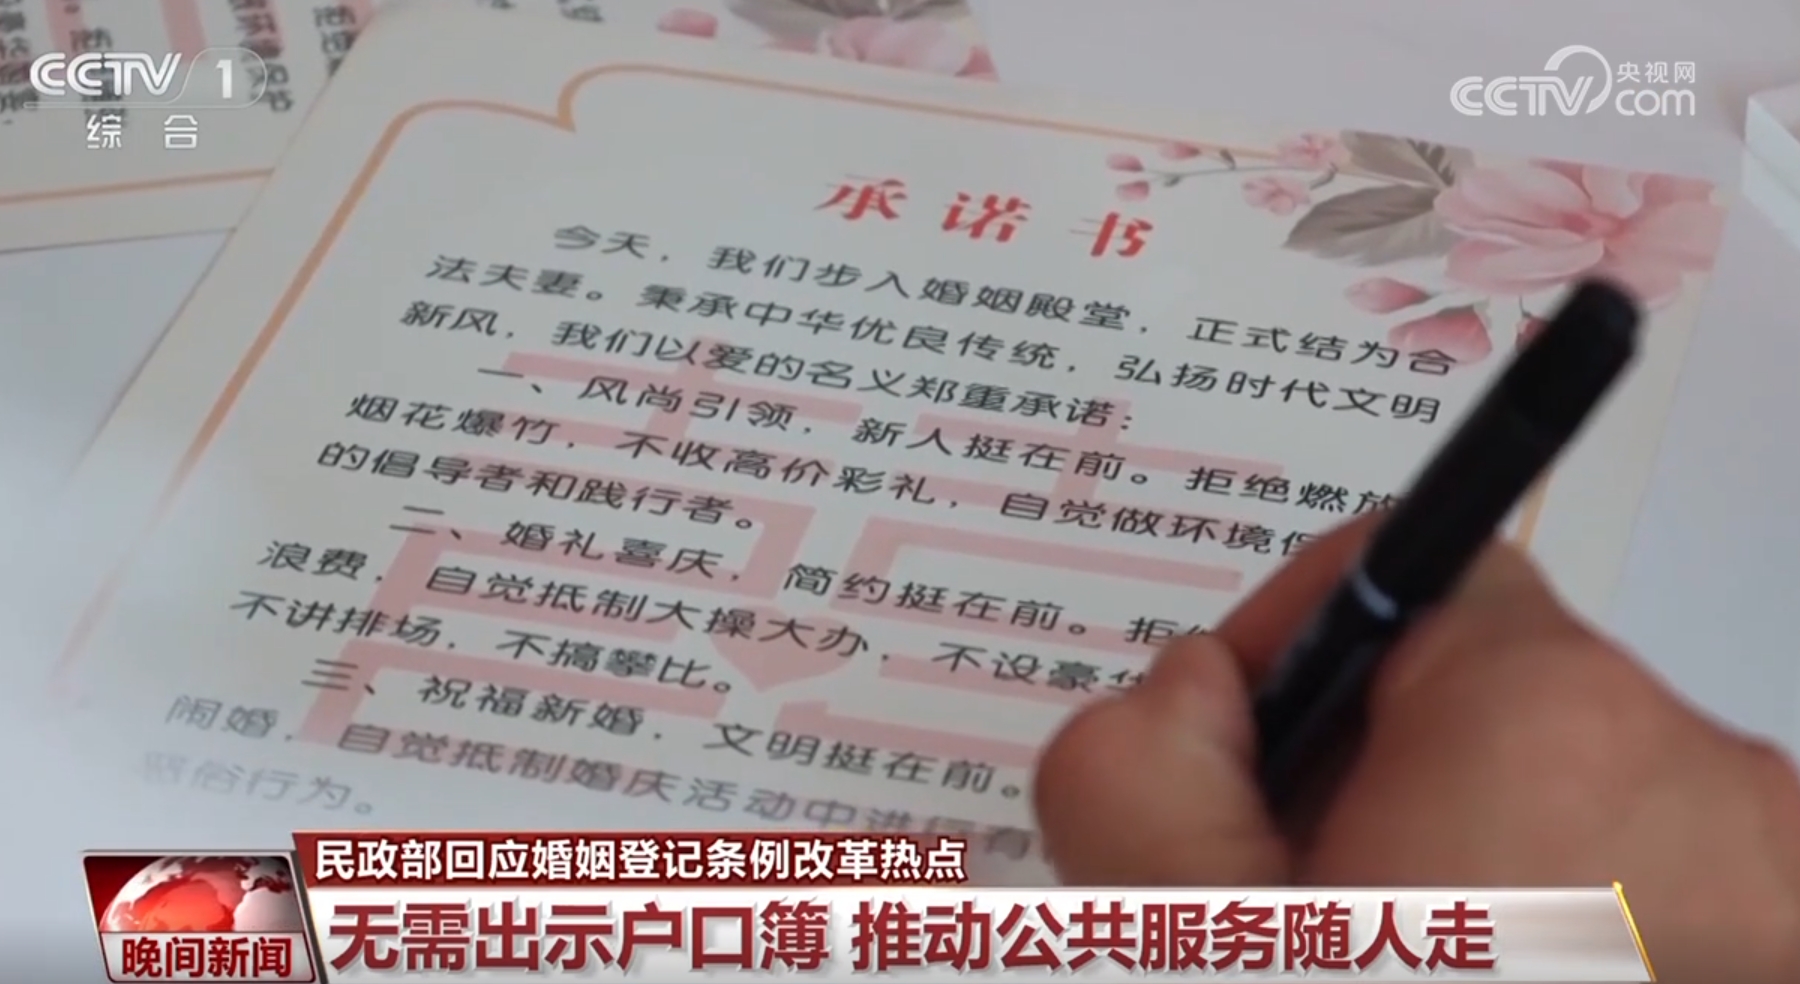 CCTV 1
综合
央视网
CCTV com
承诺书
今天，我们步入婚姻殿堂，正式结为合
法夫妻。秉承中华优良传统，弘扬时代文明
新风，我们以爱的名义郑重承诺：
一、风尚引领，新人挺在前。拒绝燃放
烟花爆竹，不收高价彩礼，自觉做环境保
的倡导者和践行者。
二、婚礼喜庆，简约挺在前。拒绝
浪费，自觉抵制大操大办，不设豪华
不讲排场，不搞攀比。
三、祝福新婚，文明挺在前。
闹婚，自觉抵制婚庆活动中进行有
恶俗行为。
民政部回应婚姻登记条例改革热点
晚间新闻
无需出示户口簿 推动公共服务随人走